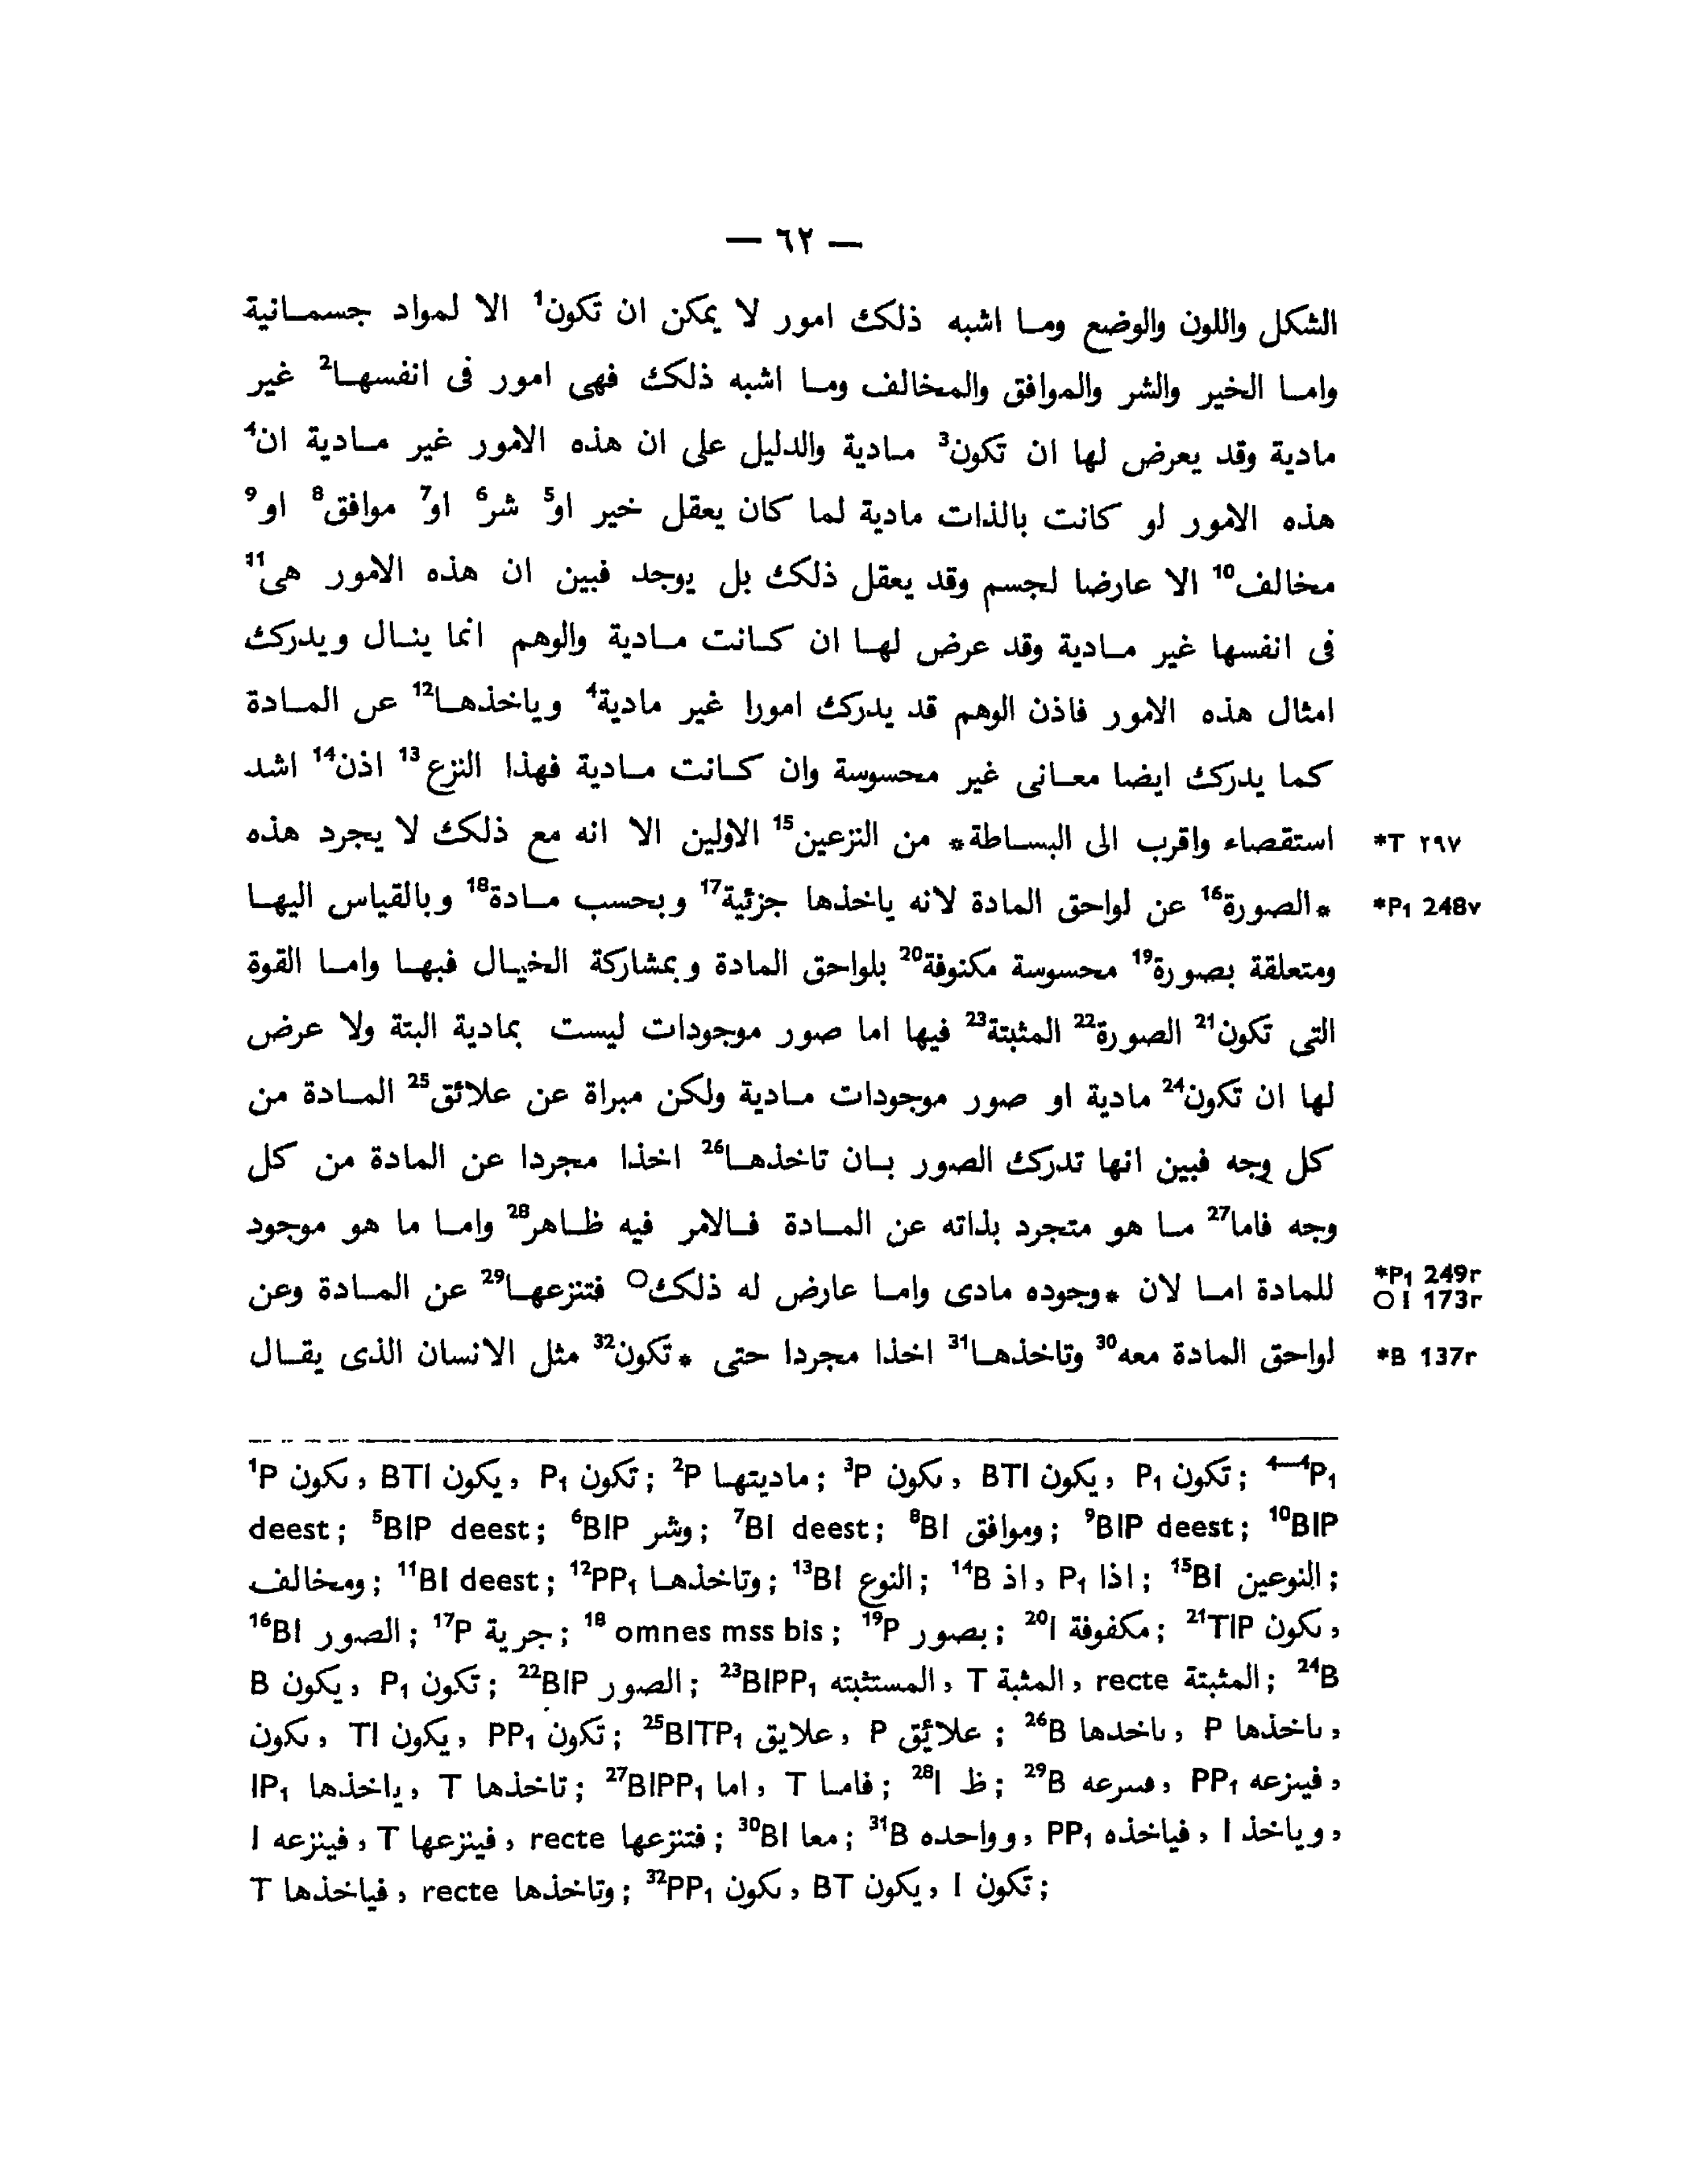 — ٦٢ —
الشكل واللون والوضع وما اشبه ذلك امور لا يمكن ان تكون¹ الا لمواد جسمانية
واما الخير والشر والموافق والمخالف وما اشبه ذلك فهى امور فى انفسها² غير
مادية وقد يعرض لها ان تكون³ مادية والدليل على ان هذه الامور غير مادية ان⁴
هذه الامور لو كانت بالذات مادية لما كان يعقل خير او⁵ شر⁶ او⁷ موافق⁸ او⁹
مخالف¹⁰ الا عارضا لجسم وقد يعقل ذلك بل يوجد فبين ان هذه الامور هى¹¹
فى انفسها غير مادية وقد عرض لها ان كانت مادية والوهم انما ينال ويدرك
امثال هذه الامور فاذن الوهم قد يدرك امورا غير مادية⁴ وياخذها¹² عن المادة
كما يدرك ايضا معانى غير محسوسة وان كانت مادية فهذا النزع¹³ اذن¹⁴ اشد
استقصاء واقرب الى البساطة* من النزعين¹⁵ الاولين الا انه مع ذلك لا يجرد هذه *T ٢٩٧
*الصورة¹⁶ عن لواحق المادة لانه ياخذها جزئية¹⁷ وبحسب مادة¹⁸ وبالقياس اليها *P₁ 248v
ومتعلقة بصورة¹⁹ محسوسة مكنوفة²⁰ بلواحق المادة وبمشاركة الخيال فيها واما القوة
التى تكون²¹ الصورة²² المثبتة²³ فيها اما صور موجودات ليست بمادية البتة ولا عرض
لها ان تكون²⁴ مادية او صور موجودات مادية ولكن مبراة عن علائق²⁵ المادة من
كل وجه فبين انها تدرك الصور بان تاخذها²⁶ اخذا مجردا عن المادة من كل
وجه فاما²⁷ ما هو متجرد بذاته عن المادة فالامر فيه ظاهر²⁸ واما ما هو موجود
للمادة اما لان *وجوده مادى واما عارض له ذلك○ فتنزعها²⁹ عن المادة وعن *P₁ 249r ○ I 173r
لواحق المادة معه³⁰ وتاخذها³¹ اخذا مجردا حتى *تكون³² مثل الانسان الذى يقال *B 137r
¹P ٮكون, BTI يكون, P₁ تكون; ²P ماديتها; ³P ٮكون, BTI يكون, P₁ تكون; ⁴—⁴P₁
deest; ⁵BIP deest; ⁶BIP وشر; ⁷BI deest; ⁸BI وموافق; ⁹BIP deest; ¹⁰BIP
ومخالف; ¹¹BI deest; ¹²PP₁ وتاخذها; ¹³BI النوع; ¹⁴B اذ, P₁ اذا; ¹⁵BI النوعين;
¹⁶BI الصور; ¹⁷P جرية; ¹⁸ omnes mss bis; ¹⁹P بصور; ²⁰I مكفوفة; ²¹TIP ٮكون,
B يكون, P₁ تكون; ²²BIP الصور; ²³BIPP₁ المستثبته, T المثبة, recte المثبتة; ²⁴B
ٮكون, TI يكون, PP₁ تكون; ²⁵BITP₁ علايق, P علائق; ²⁶B ٮاخدها, P ٮاخذها,
IP₁ ياخذها, T تاخذها; ²⁷BIPP₁ اما, T فاما; ²⁸I ظ; ²⁹B ڡٮٮرعه, PP₁ فيىزعه,
I فينزعه, T فينزعها, recte فتنزعها; ³⁰BI معا; ³¹B وواحده, PP₁ فياخذه, I وياخذ,
T فياخذها, recte وتاخذها; ³²PP₁ ٮكون, BT يكون, I تكون;